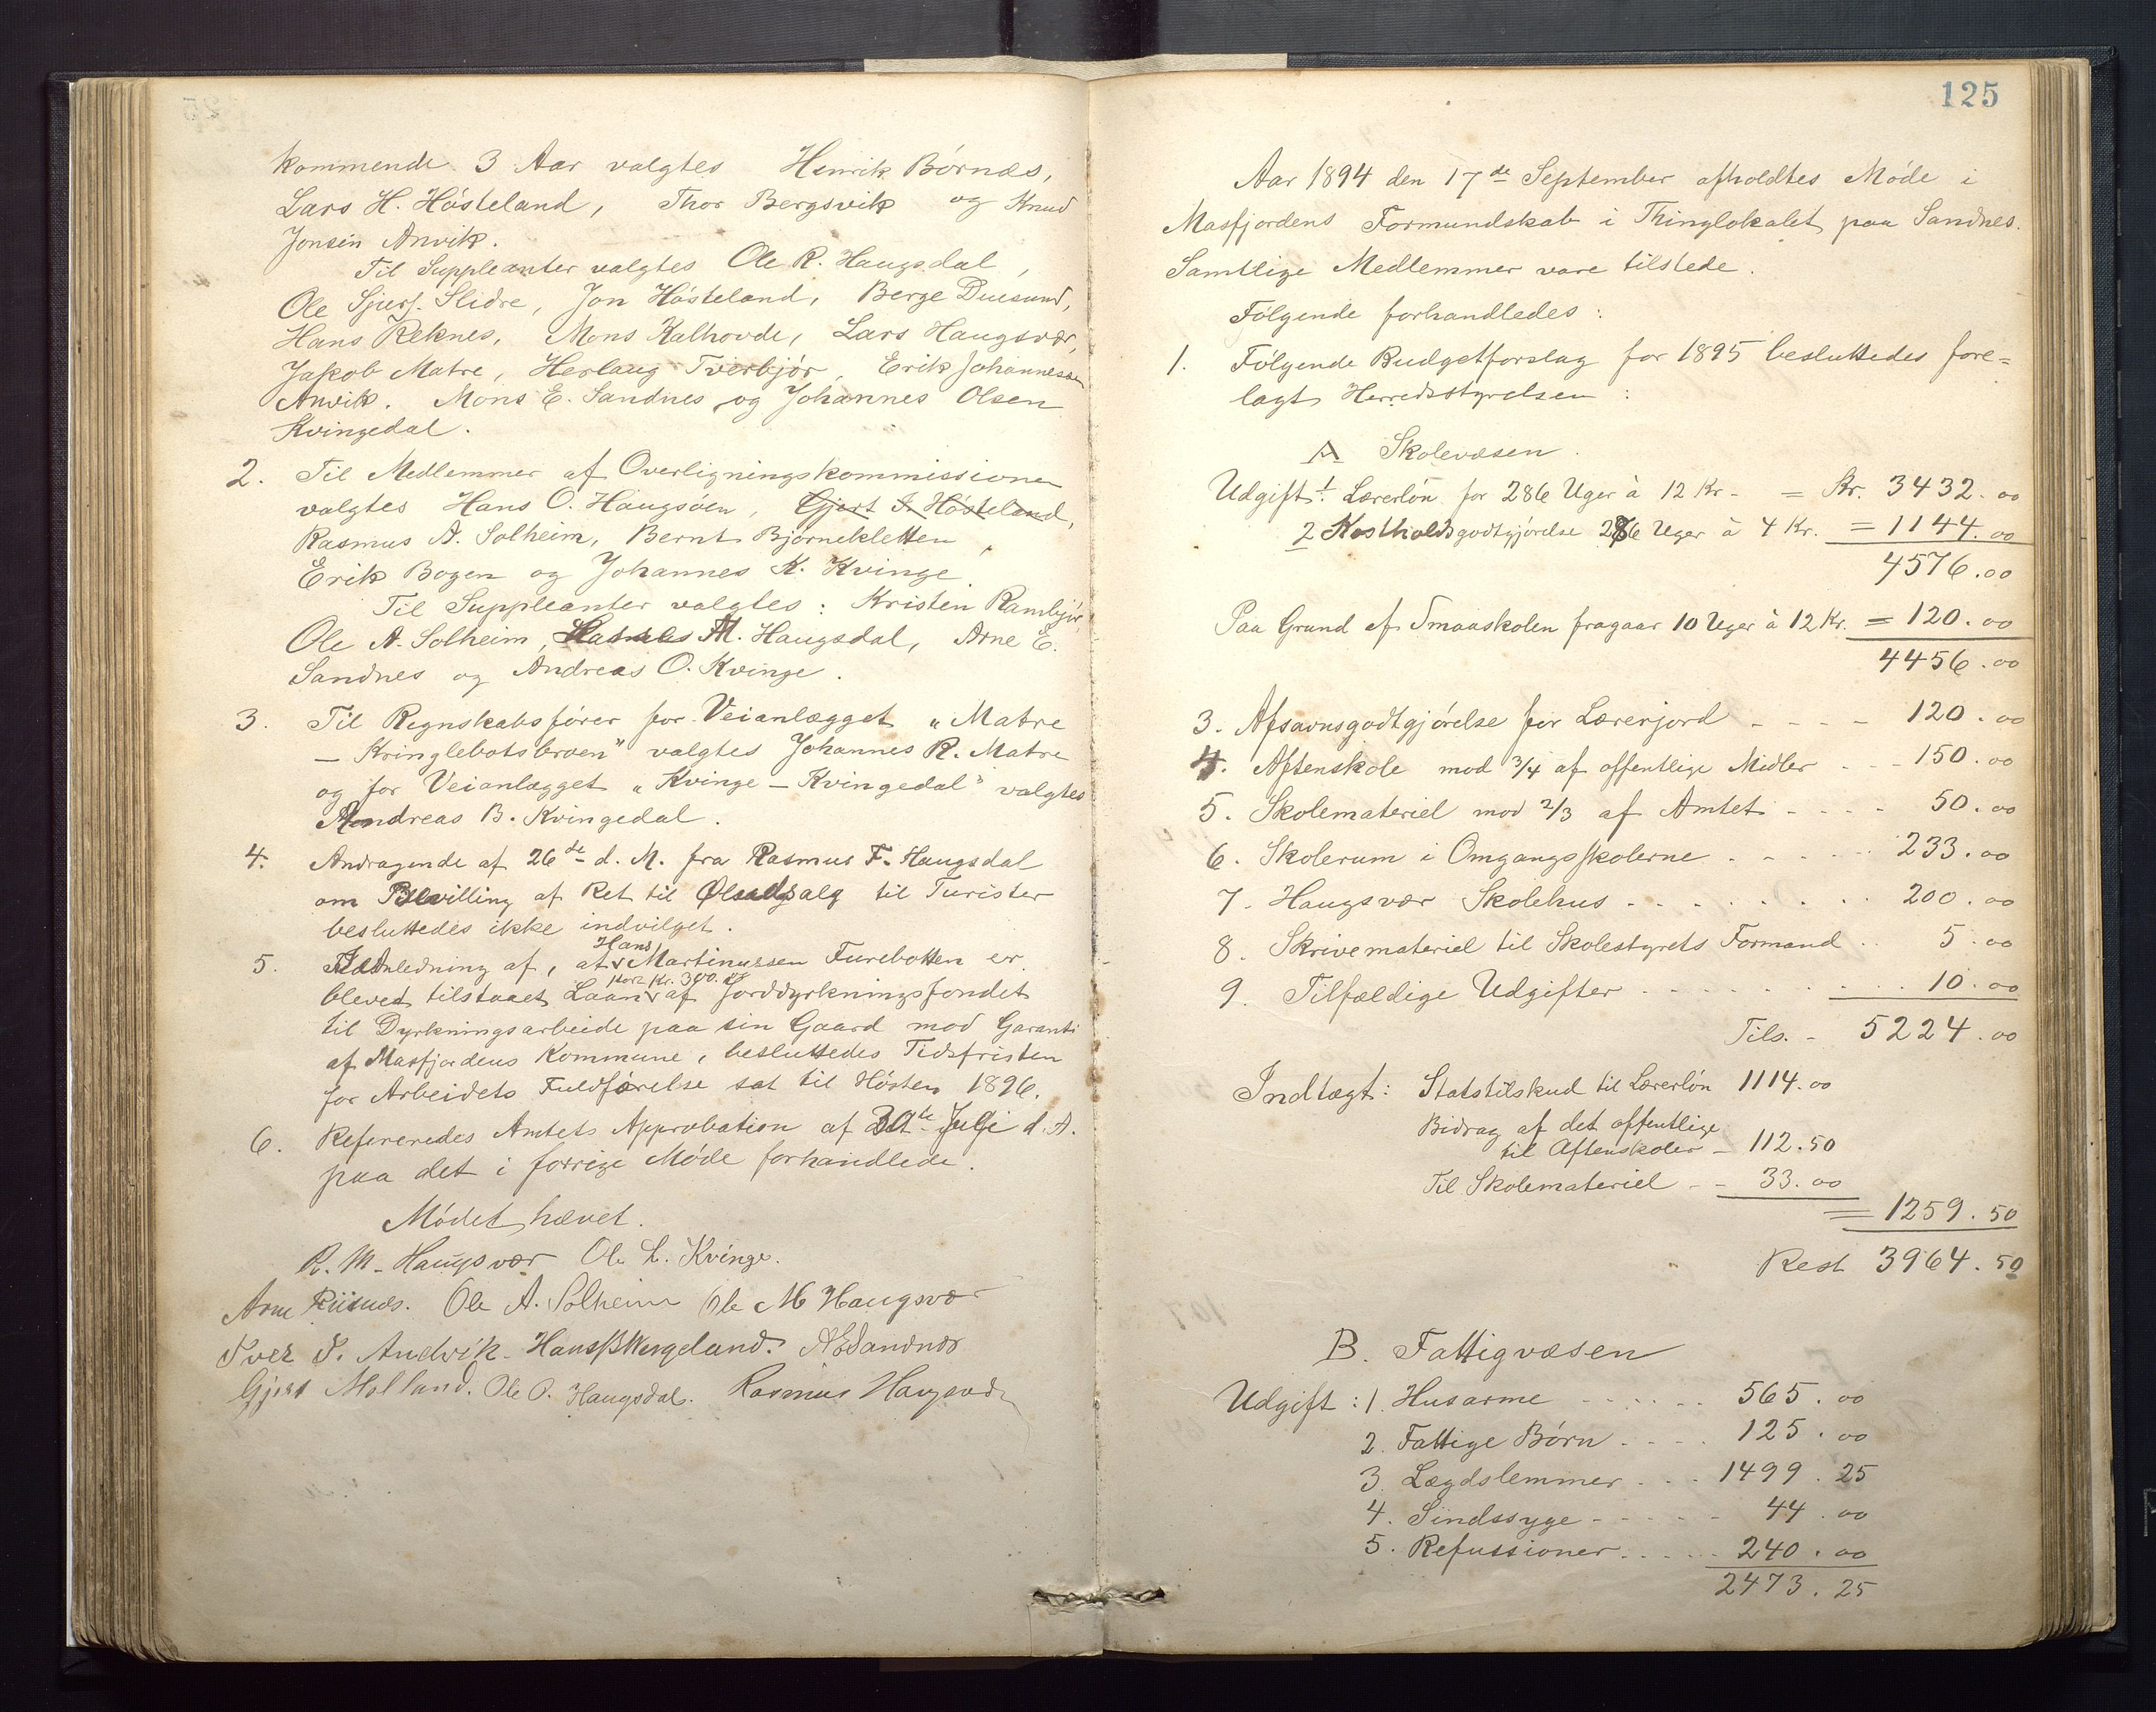 kommende 3 Aar valgtes Henrik Børnæs,
Lars H. Hösteland, Thor Bergsvik og Knud
Jonsen Anvik.
Til Suppleanter valgtes Ole R. Haugsdal,
Ole Sjurs. Slidre, Jon Hösteland, Berge Duesund,
Hans Reknes, Mons Kalhovde, Lars Haugsvær,
Jakob Matre, Herlaug Tverbjör, Erik Johannessen
Anvik. Mons E. Sandnes og Johannes Olsen
Kvingedal.
2. Til Medlemmer af Overligningskommissionen
valgtes Hans O. Haugsöen, Gjert I. Hösteland,
Rasmus A. Solheim, Bernt Björnekletten,
Erik Bogen og Johannes K. Kvinge.
Til Suppleanter valgtes: Kristen Rambjör,
Ole A. Solheim, M. Haugsdal, Arne E.
Sandnes og Andreas O. Kvinge.
3. Til Regnskabsfører for Veianlægget „Matre
– Kringlebotsbroen" valgtes Johannes R. Matre
og for Veianlægget „Kvinge – Kvingedal" valgtes
Andreas B. Kvingedal.
4. Andragende af 26de d. M. fra Rasmus F. Haugsdal
om Bevilling af Ret til Øludsalg til Turister
besluttedes ikke indvilget.
5. I Anledning af, at Hans Martinussen Furebotten er
bleved tilstaaet Laan stort Kr. 300.00 af Jorddyrkningsfondet
til Dyrkningsarbeide paa sin Gaard mod Garanti
af Masfjordens Kommune, besluttedes Tidsfristen
for Arbeidets Fuldførelse sat til Hösten 1896.
6. Refereredes Amtets Approbation af 30te Juli d. A.
paa det i forrige Møde forhandlede.
Mödet hævet.
R. M. Haugsvær Ole L. Kvinge.
Arne Riisnes. Ole A. Solheim Ole M Haugsvær
Iver I. Andvik. Hans B Wergeland. A E Sandnes
Gjert Molland. Ole O. Haugsdal. Rasmus Haugsvær
125
Aar 1894 den 17de September afholdtes Møde i
Masfjordens Formundskab i Thinglokalet paa Sandnes.
Samtlige Medlemmer vare tilstede.
Følgende forhandledes:
1. Følgende Budgetforslag for 1895 besluttedes fore=
lagt Herredsstyrelsen:
A Skolevæsen.
Udgift: 1 Lærerløn for 286 Uger à 12 Kr - = Kr. 3432.00
2 Kostholdsgodtgjørelse 286 Uger à 4 Kr. = 1144.00
4576.00
Paa Grund af Smaaskolen fragaar 10 Uger à 12 Kr. = 120.00
4456.00
3. Afsavnsgodtgjørelse for Lærerjord - - - - 120.00
4. Aftenskole mod 3/4 af offentlige Midler - - - 150.00
5. Skolemateriel mod 2/3 af Amtet - - - - 50.00
6. Skolerum i Omgangsskolerne - - - - - 233.00
7. Haugsvær Skolehus - - - - - - - - 200.00
8. Skrivemateriel til Skolestyrets Formand . . 5.00
9. Tilfældige Udgifter - - - - - - - - 10.00
Tils. - 5224.00
Indtægt: Statstilskud til Lærerløn 1114.00
Bidrag af det offentlige
til Aftenskoler - 112.50
Til Skolemateriel - - 33.00
= 1259.50
Rest 3964.50
B. Fattigvæsen
Udgift: 1. Husarme - - - - - - 565.00
2. Fattige Børn - - - - 125.00
3. Lægdslemmer - - - 1499.25
4. Sindssyge - - - - - 44.00
5. Refussioner - - - - - 240.00
2473.25